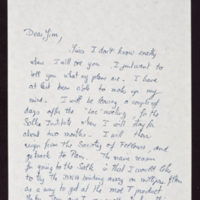 Dear Jim,
Since I don't know exactly
when I will see you I just want to
tell you what my plans are. I have
at last been able to make up my
mind. I will be leaving a couple of
days after the "tac" meeting for the
Salk Institute where I will stay for
about two months. I will then
resign from the Society of Fellows, and
go back to Paris. The main reason
for going to the Salk is that I would like
to try the DNA binding assay on
as a way to get at the mot T product